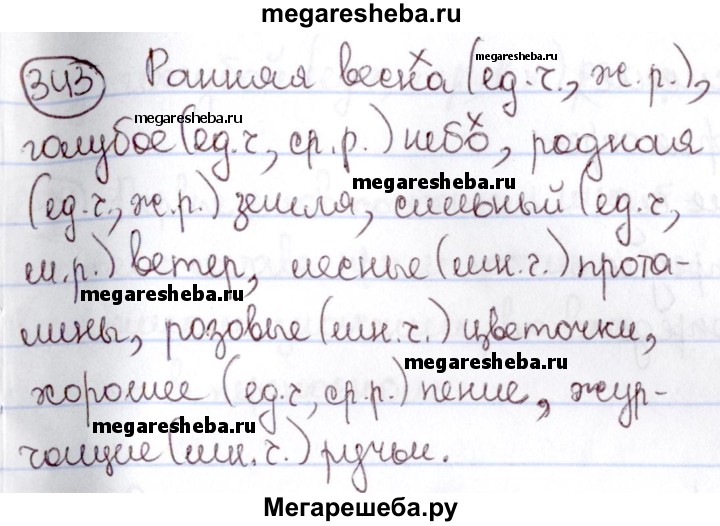 megaresheba.ru
343 Ранняя весна (ед.ч., ж.р.),
megaresheba.ru
megaresheba.ru
голубое (ед.ч, ср.р.) небо, родная
megaresheba.ru
(ед.ч., ж.р.) земля, сильный (ед.ч,
м.р.) ветер, лесные (мн.ч.) прота-
megaresheba.ru
лины, розовые (мн.ч.) цветочки,
megaresheba.ru
хорошее (ед.ч, ср.р.) пение, жур-
megaresheba.ru
чащие (мн.ч.) ручьи.
Мегарешеба.ру